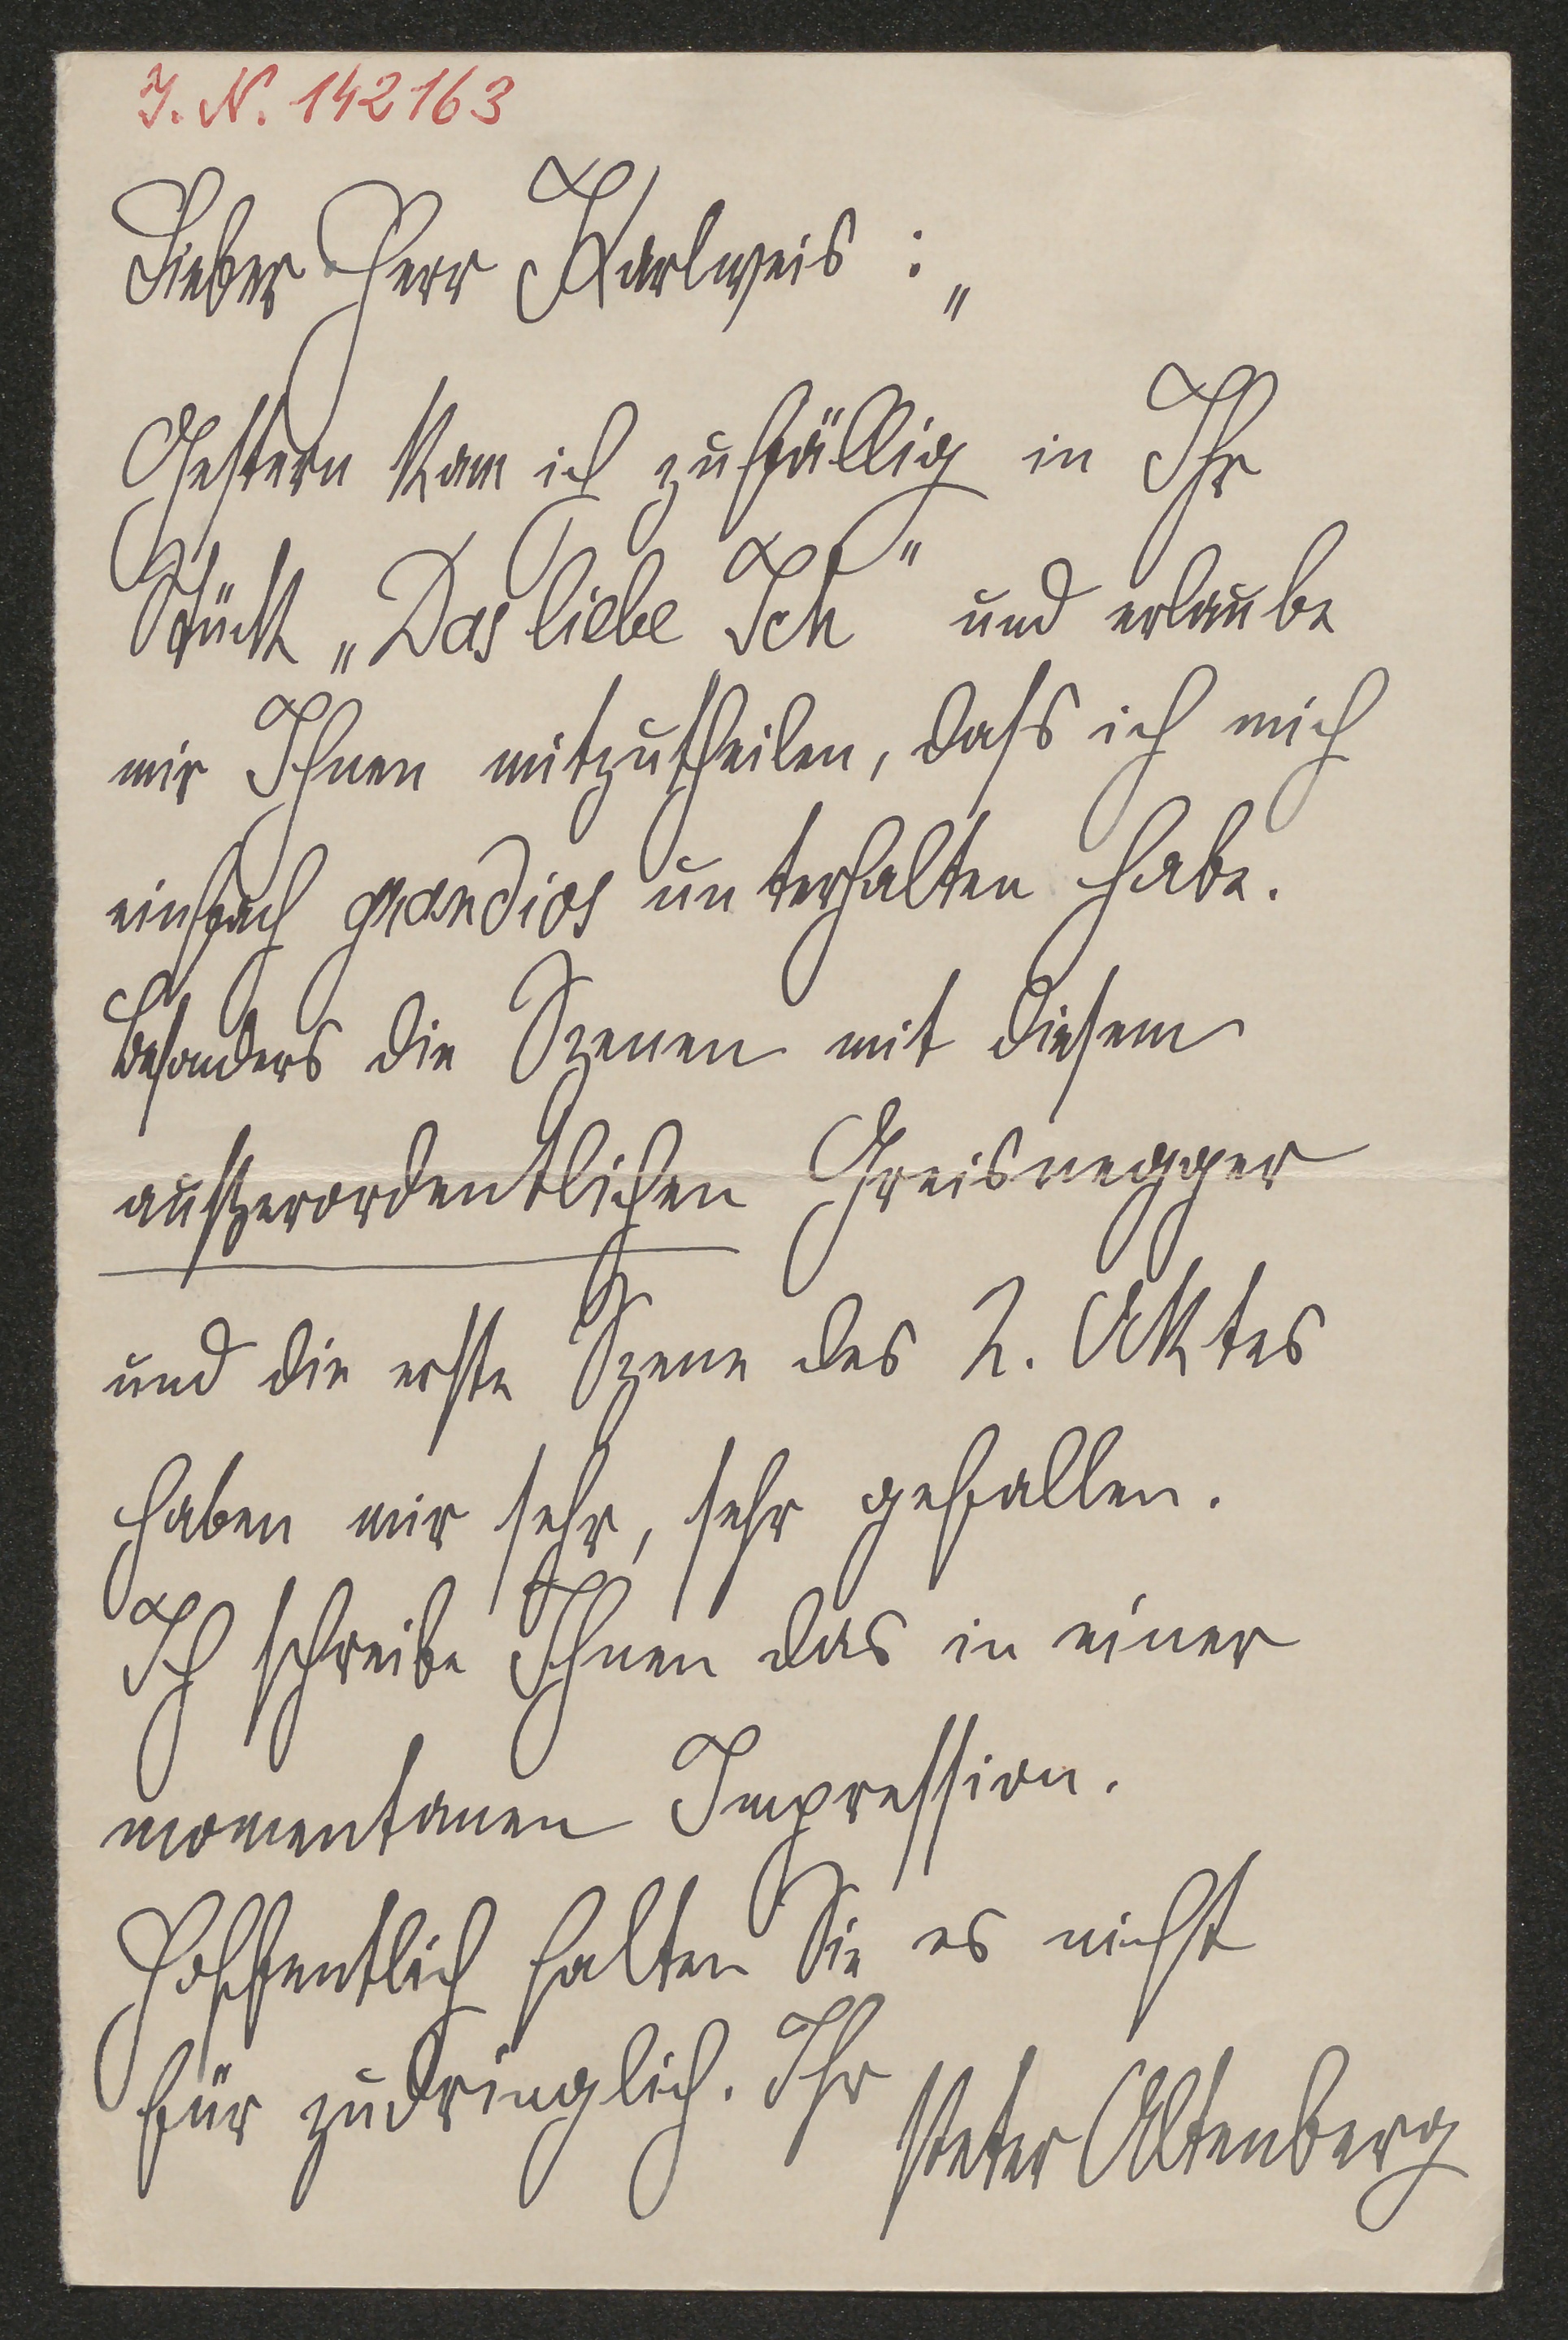 J. N. 142163
Lieber Herr Karlweis : „
Gestern kam ich zufällig in Ihr
Stück „Das liebe Ich“ und erlaube
mir Ihnen mitzutheilen, dass ich mich
einfach grandios unterhalten habe.
Besonders die Szenen mit diesem
außerordentlichen Greisnegger
und die erste Szene des 2. Aktes
haben mir sehr, sehr gefallen.
Ich schreibe Ihnen das in einer
momentanen Impression.
Hoffentlich halten Sie es nicht
für zudringlich. Ihr
Peter Altenberg